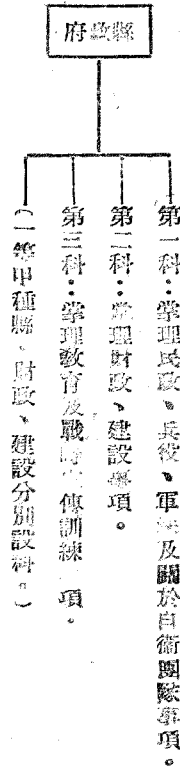 縣政府
第一科:掌理民政、兵役、軍法及關於自衛團隊事項。
第二科:掌理財政、建設事項。
第三科:掌理敎育及戰時宣傳訓練事項。
(一等甲種縣、財政、建設分別設科。)